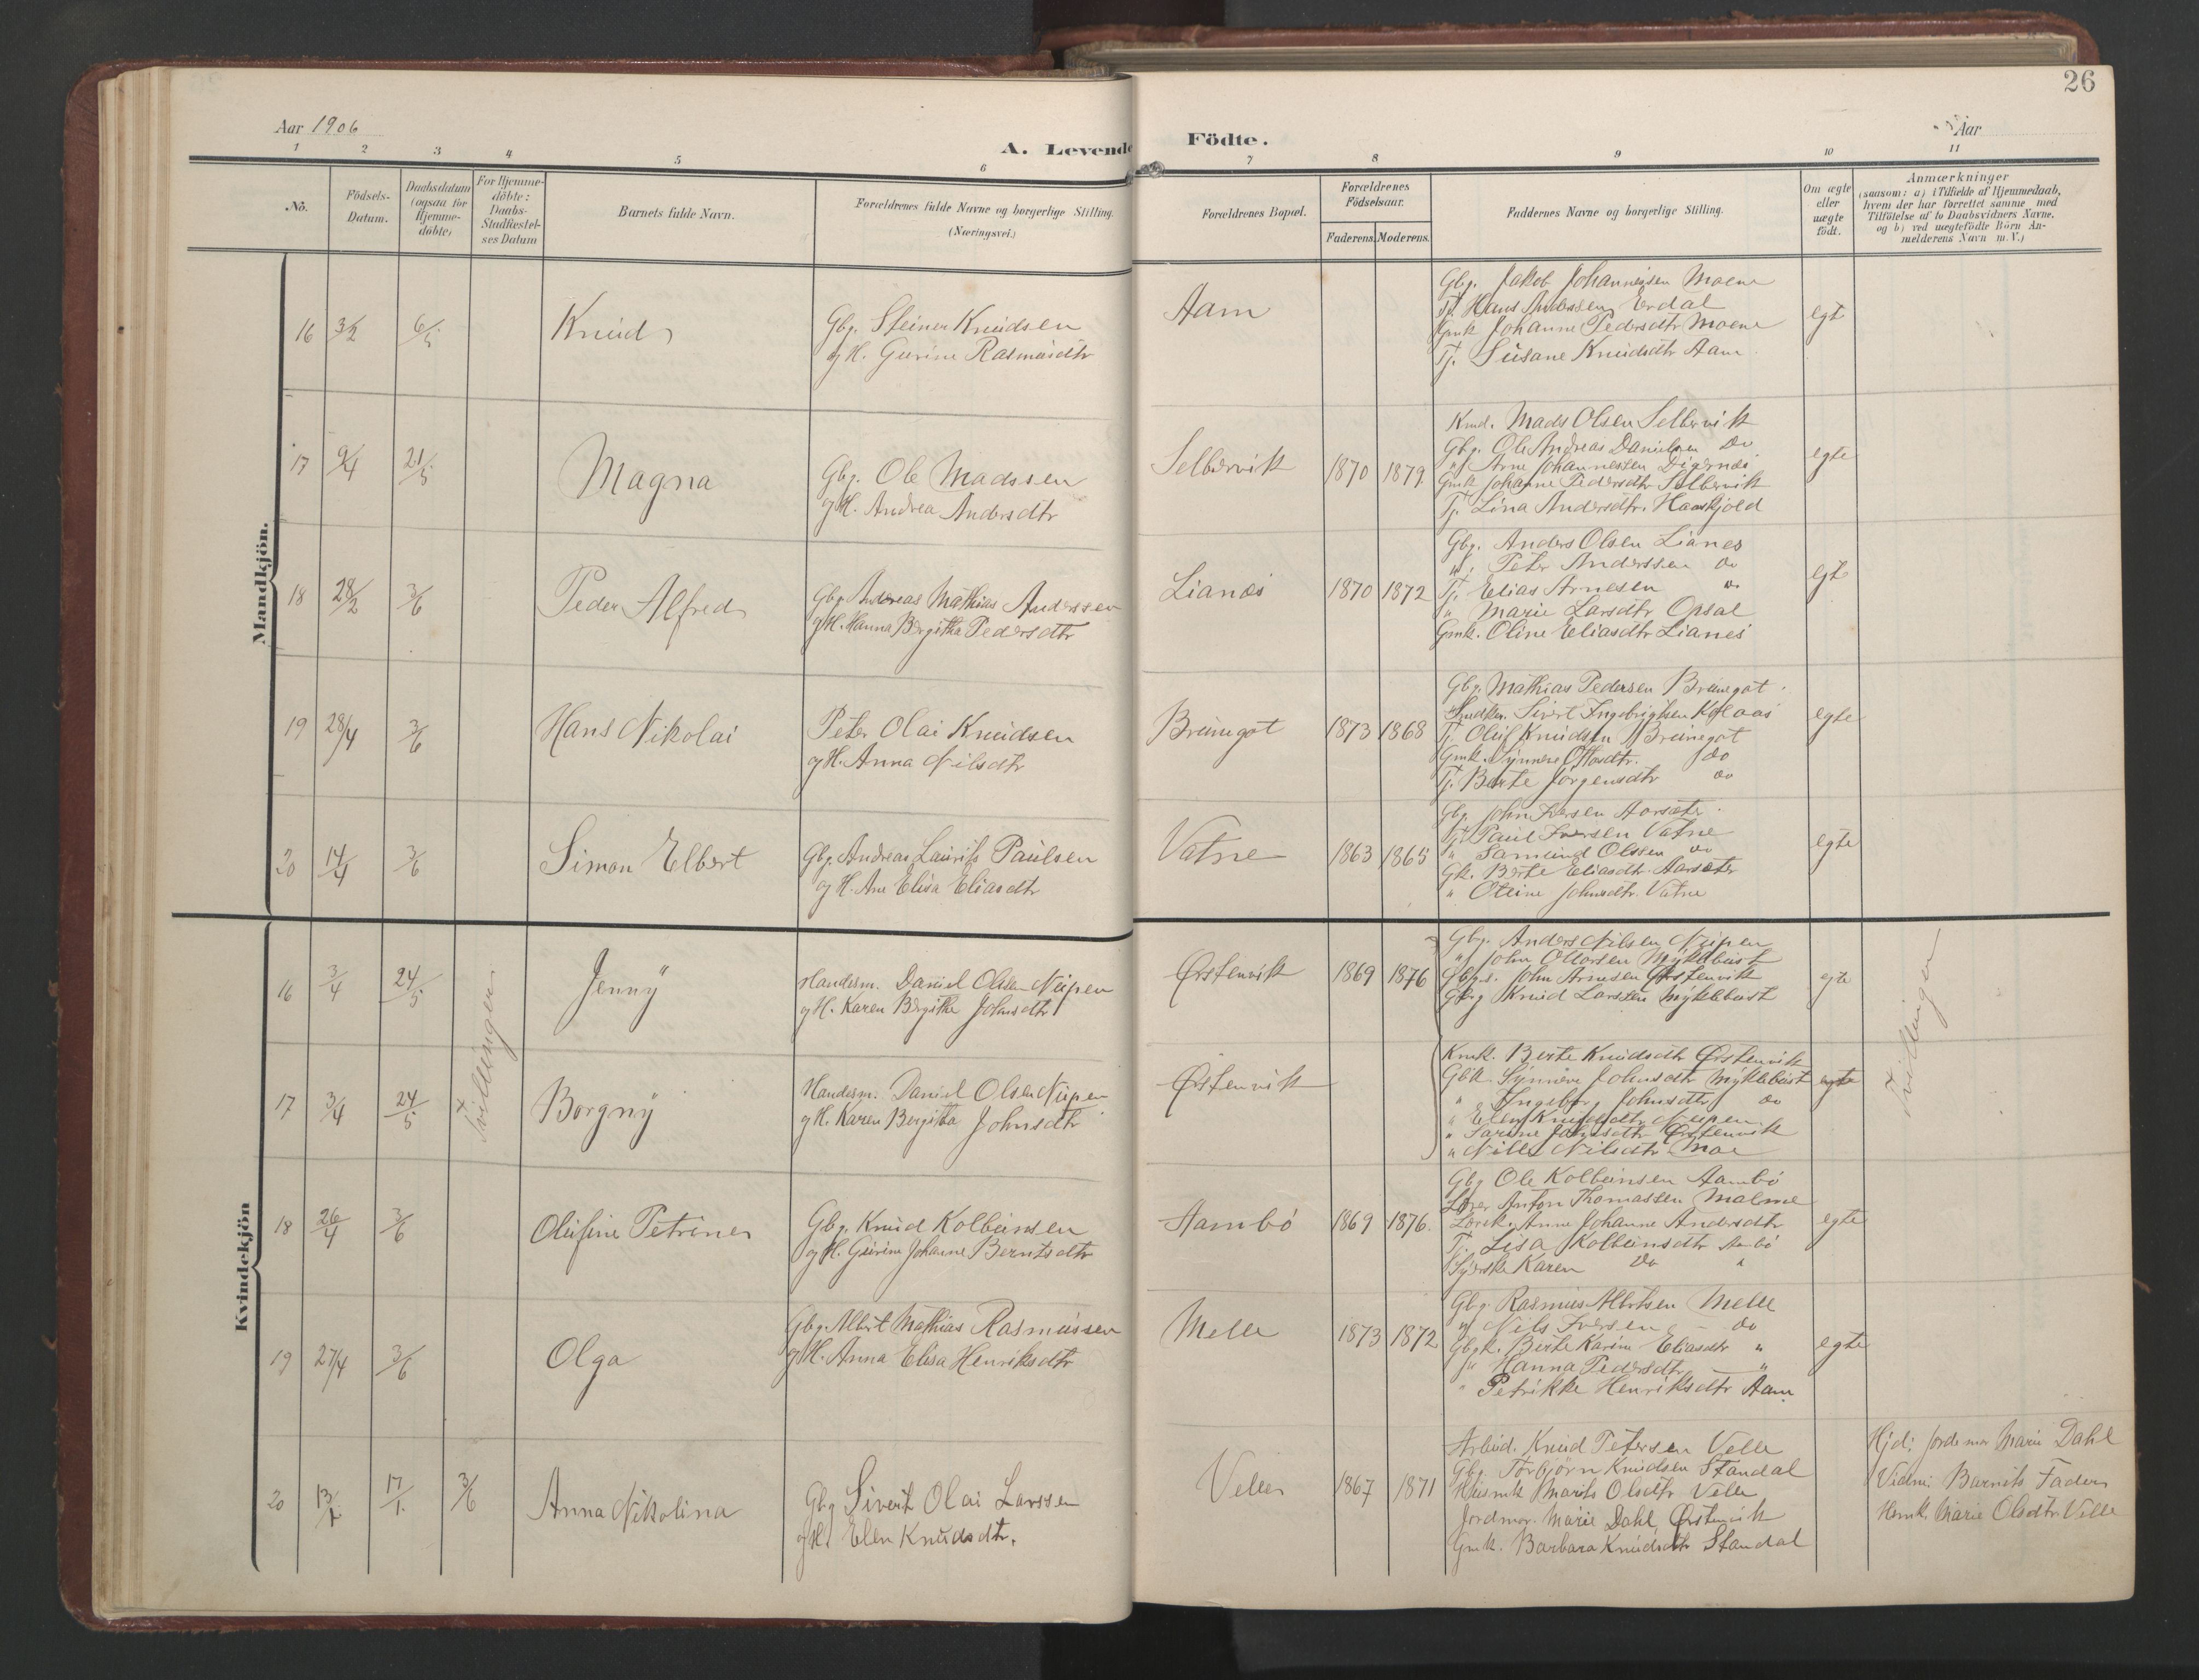 26
Aar 1906
A. Levende Födte.
Aar
1 2 3 4 5 6 7 8 9 10 11
No.
Födsels-
Datum.
Daabsdatum
(ogsaa for
Hjemme-
döbte)
For Hjemme-
döbte:
Daabs-
Stadfæstel-
ses Datum
Barnets fulde Navn.
Forældrenes fulde Navne og borgerlige Stilling.
(Næringsvei.)
Forældrenes Bopæl.
Forældrenes
Födselsaar.
Faderens. Moderens.
Faddernes Navne og borgerlige Stilling.
Om ægte
eller
uægte
födt.
Anmærkninger
(saasom: a) i Tilfælde af Hjemmedaab,
hvem der har forrettet samme med
Tilföielse af to Daabsvidners Navne,
og b) ved uægtefödte Börn An-
melderens Navn m. V.)
Mandkjön.
16 3/2 6/5 Knud
Gbr. Steiner Knudsen
og H. Gurine Rasmusdtr
Aam
Gbr. Jakob Johannessen Moene
Tj. Hans Anderssen Erdal
Gmk Johanne Pedersdtr Moene
Tj. Susane Knudsdtr Aam
egt
17 9/4 21/5 Magna
Gbr. Ole Madssen
og H. Andrea Andersdtr
Selbervik 1870 1879
Kmd. Mads Olsen Selbervik
Gbr. Ole Andreas Danielsen Do
" Arne Johannessen Digernes
Gmk Johanne Pedersdtr Selbervik
Tj. Lina Andersdtr. Haaskjold
egte
18 28/2 3/6 Peder Alfred
Gbr Andreas Mathias Anderssen
og H. Hanna Bergitha Pedersdtr
Lianes 1870 1872
Gbr. Anders Olsen Lianes
" Peter Anderssen Do
Tj. Elias Arnesen Do
" Marie Larsdtr Opsal
Gmk. Oline Eliasdtr Lianes
egt
19 28/4 3/6 Hans Nikolai
Peter Olai Knudsen
og H. Anna Nilsdtr
Brunegot 1873 1868
Gbr. Mathias Pedersen Brunegot
Sivert Ingebrigtsen Kolaas
Tj. Oluf Knudsen Brunegot
Gmk. Synnøve Ottosdtr. Do
Tj. Berte Jørgensdtr Do
egte
20 14/4 3/6 Simon Elbert
Gbr. Andreas Laurits Paulsen
og H. Ane Elisa Eliasdtr
Vatne 1863 1865
Gbr John Iversen Aarsæter
Tj. Paul Iversen Vatne
" Samund Olssen Do
Gk. Berte Eliasdtr. Aarsæter
" Oline Johnsdtr. Vatne
egte
Kvindekjön
16 3/4 24/5 Jenny
Handesm. Daniel Olsen Nupen
og H. Karen Bergithe Johnsdtr
Ørstenvik 1869 1876
Gbr. Anders Nilsen Nupen
" John Ottarsen Myklebust
John Arnesen Ørstenvik
Gbr Knud Larssen Myklebust
egte
Tvillinger
Tvillinger
17 3/4 24/5 Borgny
Handesm. Daniel Olsen Nupen
og H. Karen Bergitha Johnsdtr
Ørstenvik
Kmk. Berte Knudsdtr Ørstenvik
Gbk. Synnøve Johnsdtr Myklebust
" Ingeborg Johnsdtr Do
" Elen Knudsdtr Nupen
" Sarine Johnsdtr Ørstenvik
" Nille Nilsdtr Moe
egte
18 26/4 3/6 Olufine Petrine
Gbr. Knud Kolbeinsen
og H. Gurine Johanne Berntsdtr
Aambö 1869 1876
Gbr Ole Kolbeinsen Aambö
Lærer Anton Thomassen Malme
Lærerk. Anne Johanne Andersdtr
Tj. Lisa Kolbeinsdtr Aambö
Syerske Karen Do "
egte
19 27/4 3/6 Olga
Gbr. Albert Mathias Rasmussen
og H. Anna Elisa Henriksdtr
Melle 1873 1872
Gbr. Rasmus Albertsen Melle
" Nils Iversen Do
Gbrk. Berte Karine Eliasdtr "
" Hanna Pedersdtr "
" Petrikke Henriksdtr Aam
egte
20 13/1 17/1 3/6 Anna Nikolina
Gbr Sivert Olai Larssen
og H. Elen Knudsdtr.
Velle 1867 1871
Arbeid. Knud Petersen Velle
Gbr. Torbjörn Knudsen Standal
Husmk Marits Olsdtr Velle
Jordmor. Marie Dahl, Ørstenvik
Gmk. Barbara Knudsdtr Standal
Hjd: Jordemor Marie Dahl
Vidne: Barnets Fader
Hsmk. Marie Olsdtr. Velle